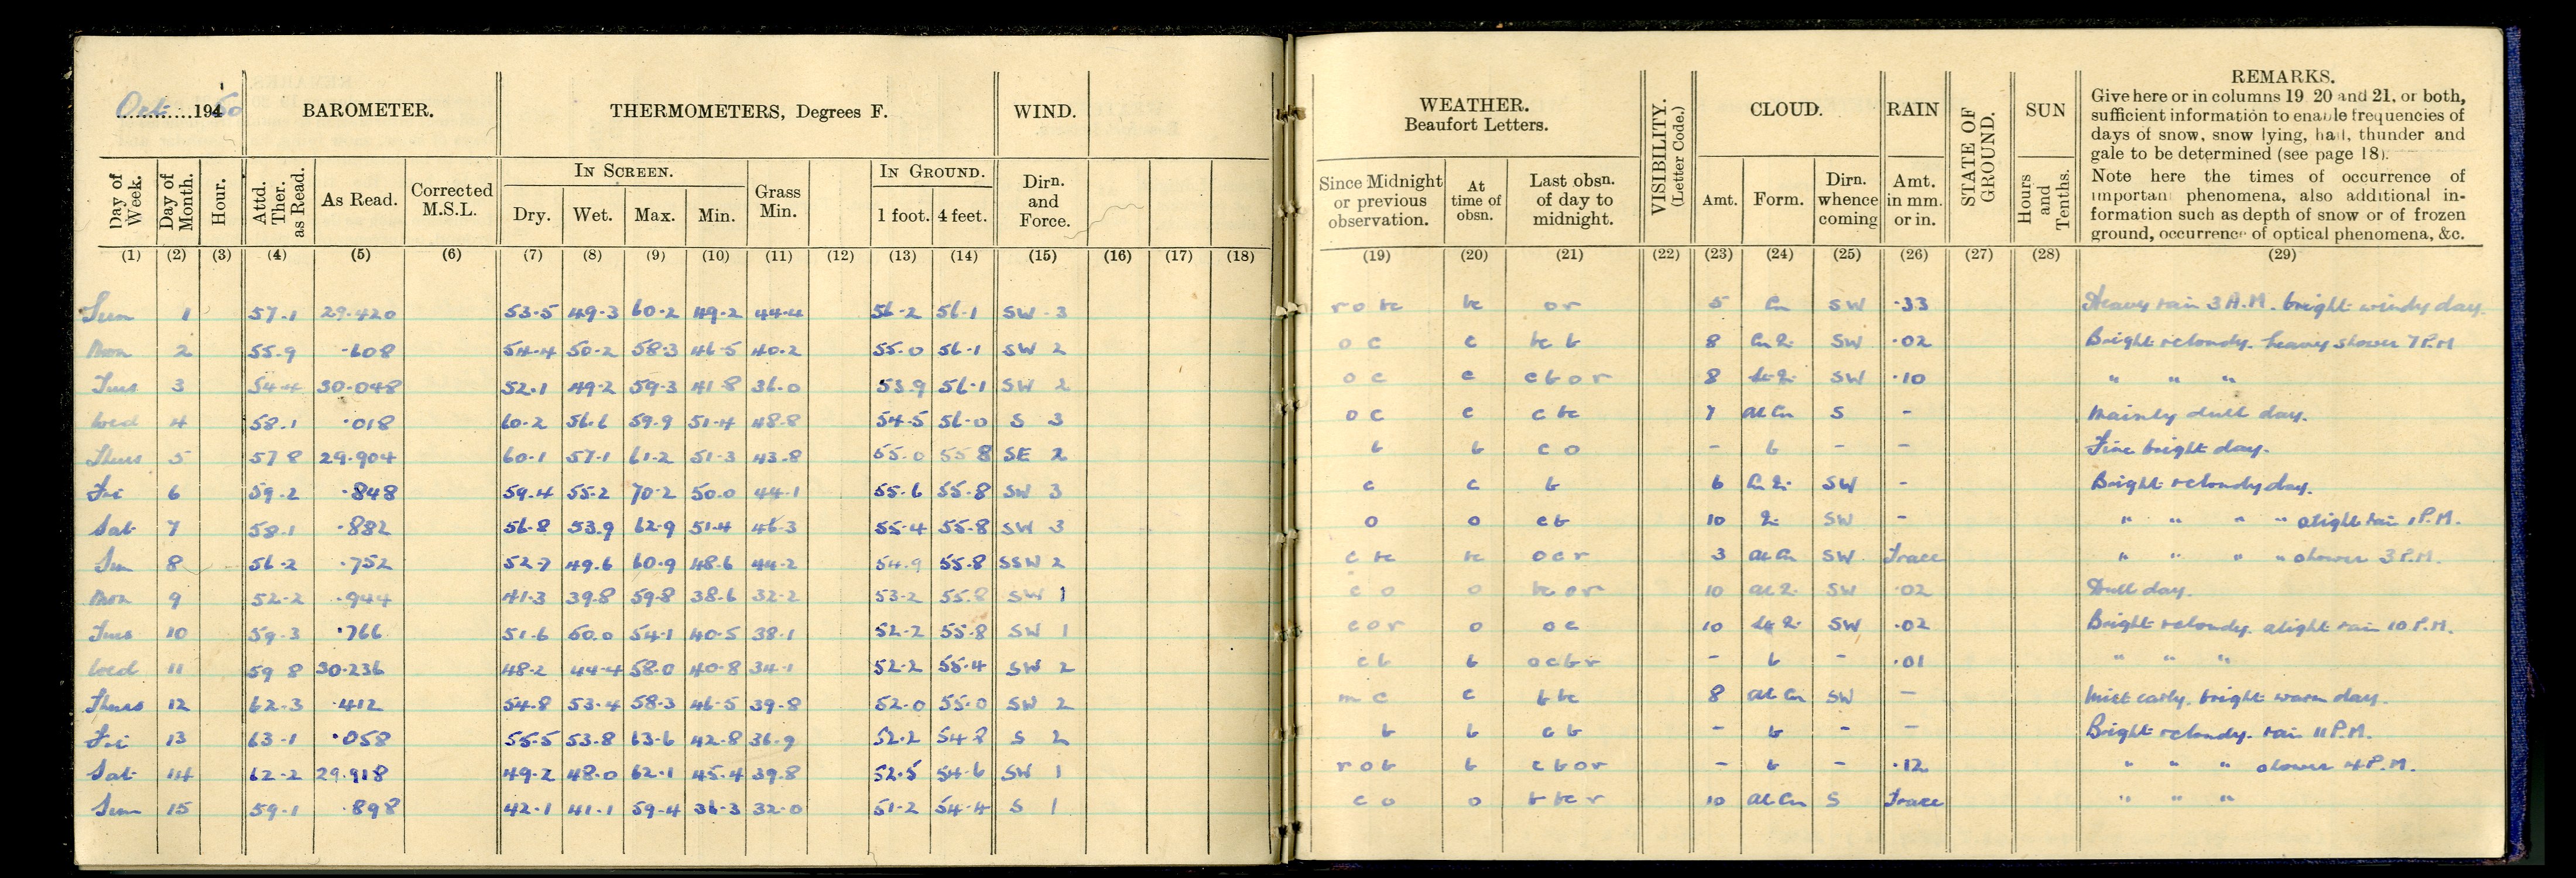 Oct 1950
BAROMETER.
THERMOMETERS, Degrees F.
WIND.
WEATHER.
Beaufort Letters.
VISIBILITY.
(Letter Code.)
CLOUD.
RAIN
STATE OF GROUND.
SUN
REMARKS.
Give here or in columns 19 20 and 21, or both,
sufficient information to enable frequencies of
days of snow, snow lying, hail, thunder and
gale to be determined (see page 18).
Note here the times of occurrence of
important phenomena, also additional in-
formation such as depth of snow or of frozen
ground, occurrence of optical phenomena, &c.
Day of Week.
Day of Month.
Hour.
Attd. Ther. as Read.
As Read.
Corrected M.S.L.
IN SCREEN.
Dry. Wet. Max. Min.
Grass Min.
IN GROUND.
1 foot. 4 feet.
Dirn. and Force.
Since Midnight or previous observation.
At time of obsn.
Last obsn. of day to midnight.
Amt. Form.
Dirn. whence coming
Amt. in mm. or in.
Hours and Tenths.
(1) (2) (3) (4) (5) (6) (7) (8) (9) (10) (11) (12) (13) (14) (15) (16) (17) (18) (19) (20) (21) (22) (23) (24) (25) (26) (27) (28) (29)
Sun 1 57.1 29.420 53.5 49.3 60.2 49.2 44.4 56.2 56.1 SW 3 r o bc bc o r 5 Cu SW .33 Heavy rain 3 A.M. bright windy day.
Mon 2 55.9 .608 54.4 50.2 58.3 46.5 40.2 55.0 56.1 SW 2 o c c bc b 8 SW .02 Bright & cloudy. heavy shower 7 P.M
Tues 3 54.4 30.048 52.1 49.2 59.3 41.8 36.0 53.9 56.1 SW 2 o c c c b o r 8 SW .10 " " "
Wed 4 58.1 .018 60.2 56.6 59.9 51.4 48.8 54.5 56.0 S 3 o c c c bc 7 Al Cu S - Mainly dull day.
Thurs 5 57.8 29.904 60.1 57.1 61.2 51.3 43.8 55.0 55.8 SE 2 b b c o - b - - Fine bright day.
Fri 6 59.2 .848 59.4 55.2 70.2 50.0 44.1 55.6 55.8 SW 3 c c b 6 SW - Bright & cloudy day.
Sat 7 58.1 .882 56.8 53.9 62.9 51.4 46.3 55.4 55.8 SW 3 o o c b 10 SW - " " " " slight rain 1 P.M.
Sun 8 56.2 .752 52.7 49.6 60.9 48.6 44.2 54.9 55.8 SSW 2 c bc bc o c r 3 Al Cu SW Trace " " " " shower 3 P.M.
Mon 9 52.2 .944 41.3 39.8 59.8 38.6 32.2 53.2 55.8 SW 1 c o o bc o r 10 SW .02 Dull day.
Tues 10 59.3 .766 51.6 50.0 54.1 40.5 38.1 52.2 55.8 SW 1 c o r o o c 10 SW .02 Bright & cloudy. slight rain 10 P.M.
Wed 11 59.8 30.236 48.2 44.4 58.0 40.8 34.1 52.2 55.4 SW 2 c b b o c b r - b - .01 " " "
Thurs 12 62.3 .412 54.8 53.4 58.3 46.5 39.8 52.0 55.0 SW 2 m c c b bc 8 Al Cu SW - Mist early. bright warm day.
Fri 13 63.1 .058 55.5 53.8 63.6 42.8 36.9 52.2 54.8 S 2 b b c b - b - - Bright & cloudy. rain 11 P.M.
Sat 14 62.2 29.918 49.2 48.0 62.1 45.4 39.8 52.5 54.6 SW 1 r o b b c b o r - b - .12 " " " shower 4 P.M.
Sun 15 59.1 .898 42.1 41.1 59.4 36.3 32.0 51.2 54.4 S 1 c o o b bc r 10 Al Cu S Trace " " "